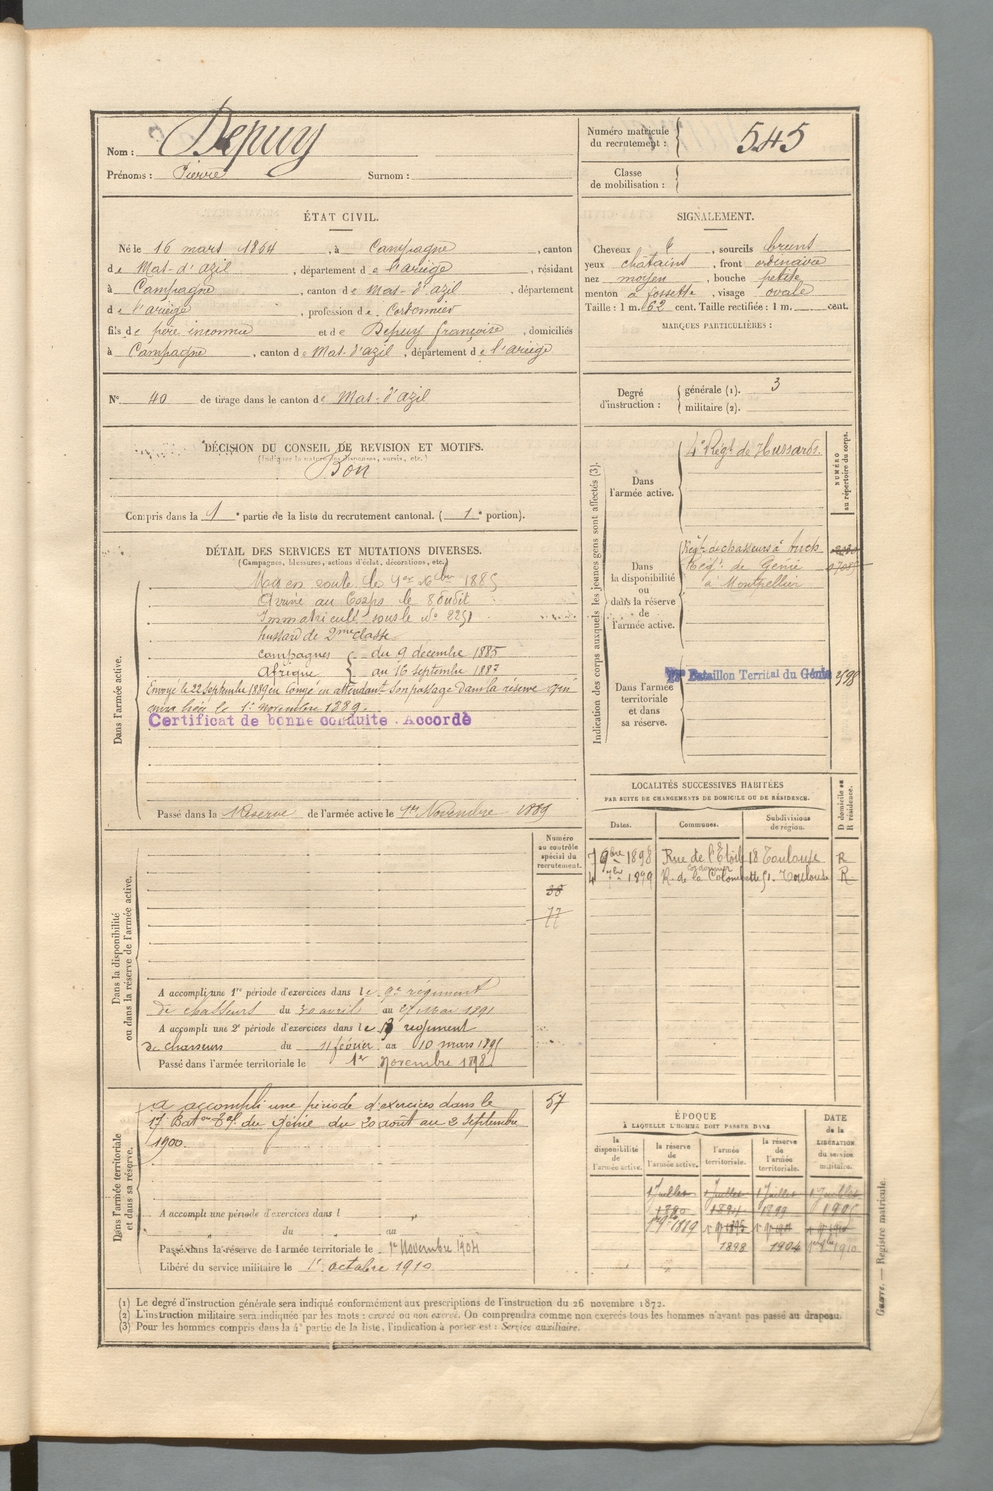 Nom : Depuy
Prénoms : Pierre Surnom :
Numéro matricule du recrutement : 545
Classe de mobilisation :
ÉTAT CIVIL.
Né le 16 mars 1864, à Campagne, canton
de Mas-d'azil, département de l'ariège, résidant
à Campagne, canton de Mas-d'azil, département
de l'ariège, profession de Cordonnier
fils de père inconnu et de Depuy françoise, domiciliés
à Campagne, canton de Mas-d'azil, département de l'ariège
SIGNALEMENT.
Cheveux et, sourcils bruns
yeux chatains, front ordinaire
nez moyen, bouche petite
menton à fossette, visage ovale
Taille : 1 m. 62 cent. Taille rectifiée : 1 m. cent.
MARQUES PARTICULIÈRES :
N° 40 de tirage dans le canton de Mas-d'azil
Degré d'instruction : générale (1). 3
militaire (2).
DÉCISION DU CONSEIL DE REVISION ET MOTIFS.
Bon
Compris dans la 1e partie de la liste du recrutement cantonal. (1e portion).
DÉTAIL DES SERVICES ET MUTATIONS DIVERSES.
(Campagnes, blessures, actions d'éclat, décorations, etc.)
Dans l'armée active.
Mis en route le 1er Xbre 1885
Arrivé au Corps le 8 dudit
Immatriculé sous le N° 2251
hussard de 2me classe
campagnes du 9 décembre 1885
Afrique au 16 septembre 1887
Envoyé le 22 septembre 1889 en congé en attendant son passage dans la réserve
le 1er Novembre 1889.
Certificat de bonne conduite. Accordé
Passé dans la Réserve de l'armée active le 1er Novembre 1889
Indication des corps auxquels les jeunes gens sont affectés (3).
NUMÉRO au répertoire du corps.
Dans l'armée active.
4e Régt de Hussards.
Dans la disponibilité ou dans la réserve de l'armée active.
Régt de chasseurs à Auch
Régt de Génie
à Montpellier
Dans l'armée territoriale et dans sa réserve.
Bataillon Territal du Génie 598
LOCALITÉS SUCCESSIVES HABITÉES
PAR SUITE DE CHANGEMENTS DE DOMICILE OU DE RÉSIDENCE.
Dates. Communes. Subdivisions de région. D domicile ou R résidence.
7 9bre 1898 Rue de l'Etoile 18 Toulouse R
4 1899 R. de la Colombette 51. Toulouse R
Dans la disponibilité ou dans la réserve de l'armée active.
Numéro au contrôle spécial du recrutement.
38
77
A accompli une 1re période d'exercices dans le 9e régiment
de chasseurs du 30 avril au 27 Mai 1891
A accompli une 2e période d'exercices dans le régiment
de chasseurs du 11 février au 10 mars
Passé dans l'armée territoriale le 1er Novembre 1898
Dans l'armée territoriale et dans sa réserve.
a accompli une période d'exercices dans le 57
17e Baton Tal du génie du 20 août au 2 Septembre
1900.
A accompli une période d'exercices dans l
du au
Passé dans la réserve de l'armée territoriale le 1er Novembre 1904
Libéré du service militaire le 1er octobre 1910
ÉPOQUE
À LAQUELLE L'HOMME DOIT PASSER DANS
DATE de la LIBÉRATION du service militaire.
la disponibilité de l'armée active. la réserve de l'armée active. l'armée territoriale. la réserve de l'armée territoriale.
1 Juillet 1 Juillet 1 Juillet 1 Juillet
1890 1899
1889
1898 1904 1910
(1) Le degré d'instruction générale sera indiqué conformément aux prescriptions de l'instruction du 26 novembre 1872.
(2) L'instruction militaire sera indiquée par les mots : exercé ou non exercé. On comprendra comme non exercés tous les hommes n'ayant pas passé au drapeau.
(3) Pour les hommes compris dans la 4e partie de la liste, l'indication à porter est : Service auxiliaire.
Guerre. — Registre matricule.